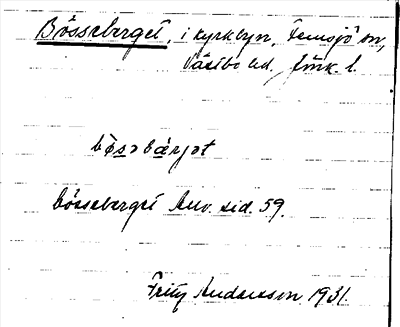 Bösseberget, i kyrkbyn, Femsjö sn,
Västbo hd, Jönk. l.
bøsəbærjət
bösseberget Muv. sid. 59.
Fritz Andersson 1931.